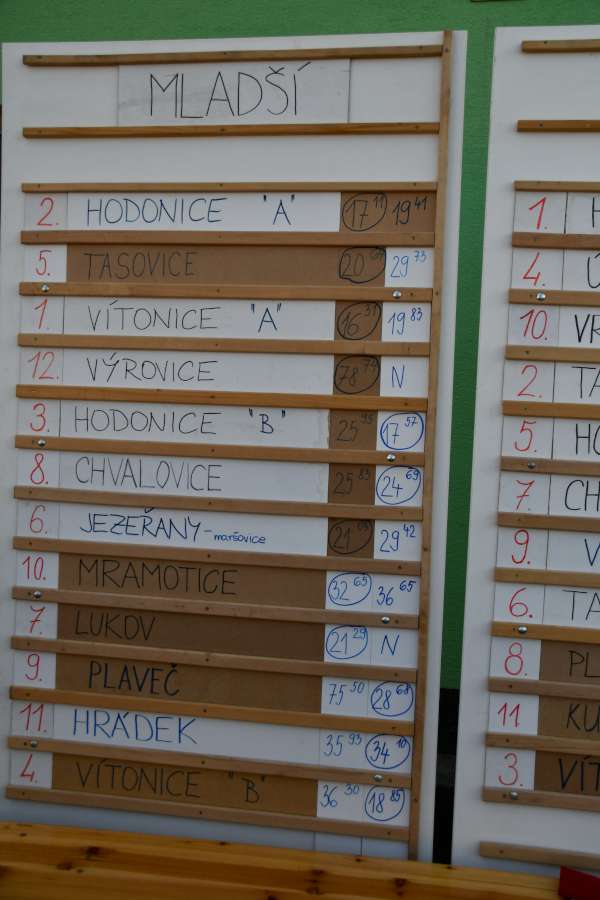 MLADŠÍ
2. HODONICE "A" 17 11 19 41
5. TASOVICE 20 29 73
1. VÍTONICE "A" 16 31 19 83
12. VÝROVICE 78 N
3. HODONICE "B" 25 95 17 57
8. CHVALOVICE 25 83 24 69
6. JEZEŘANY - maršovice 21 29 42
10. MRAMOTICE 32 65 36 65
7. LUKOV 21 29 N
9. PLAVEČ 75 50 28 68
11. HRÁDEK 35 93 34 10
4. VÍTONICE "B" 36 30 18 85
1. H
4. Ú
10. VR
2. TA
5. HO
7. CH
9. V
6. TA
8. PL
11 KU
3. VÍT